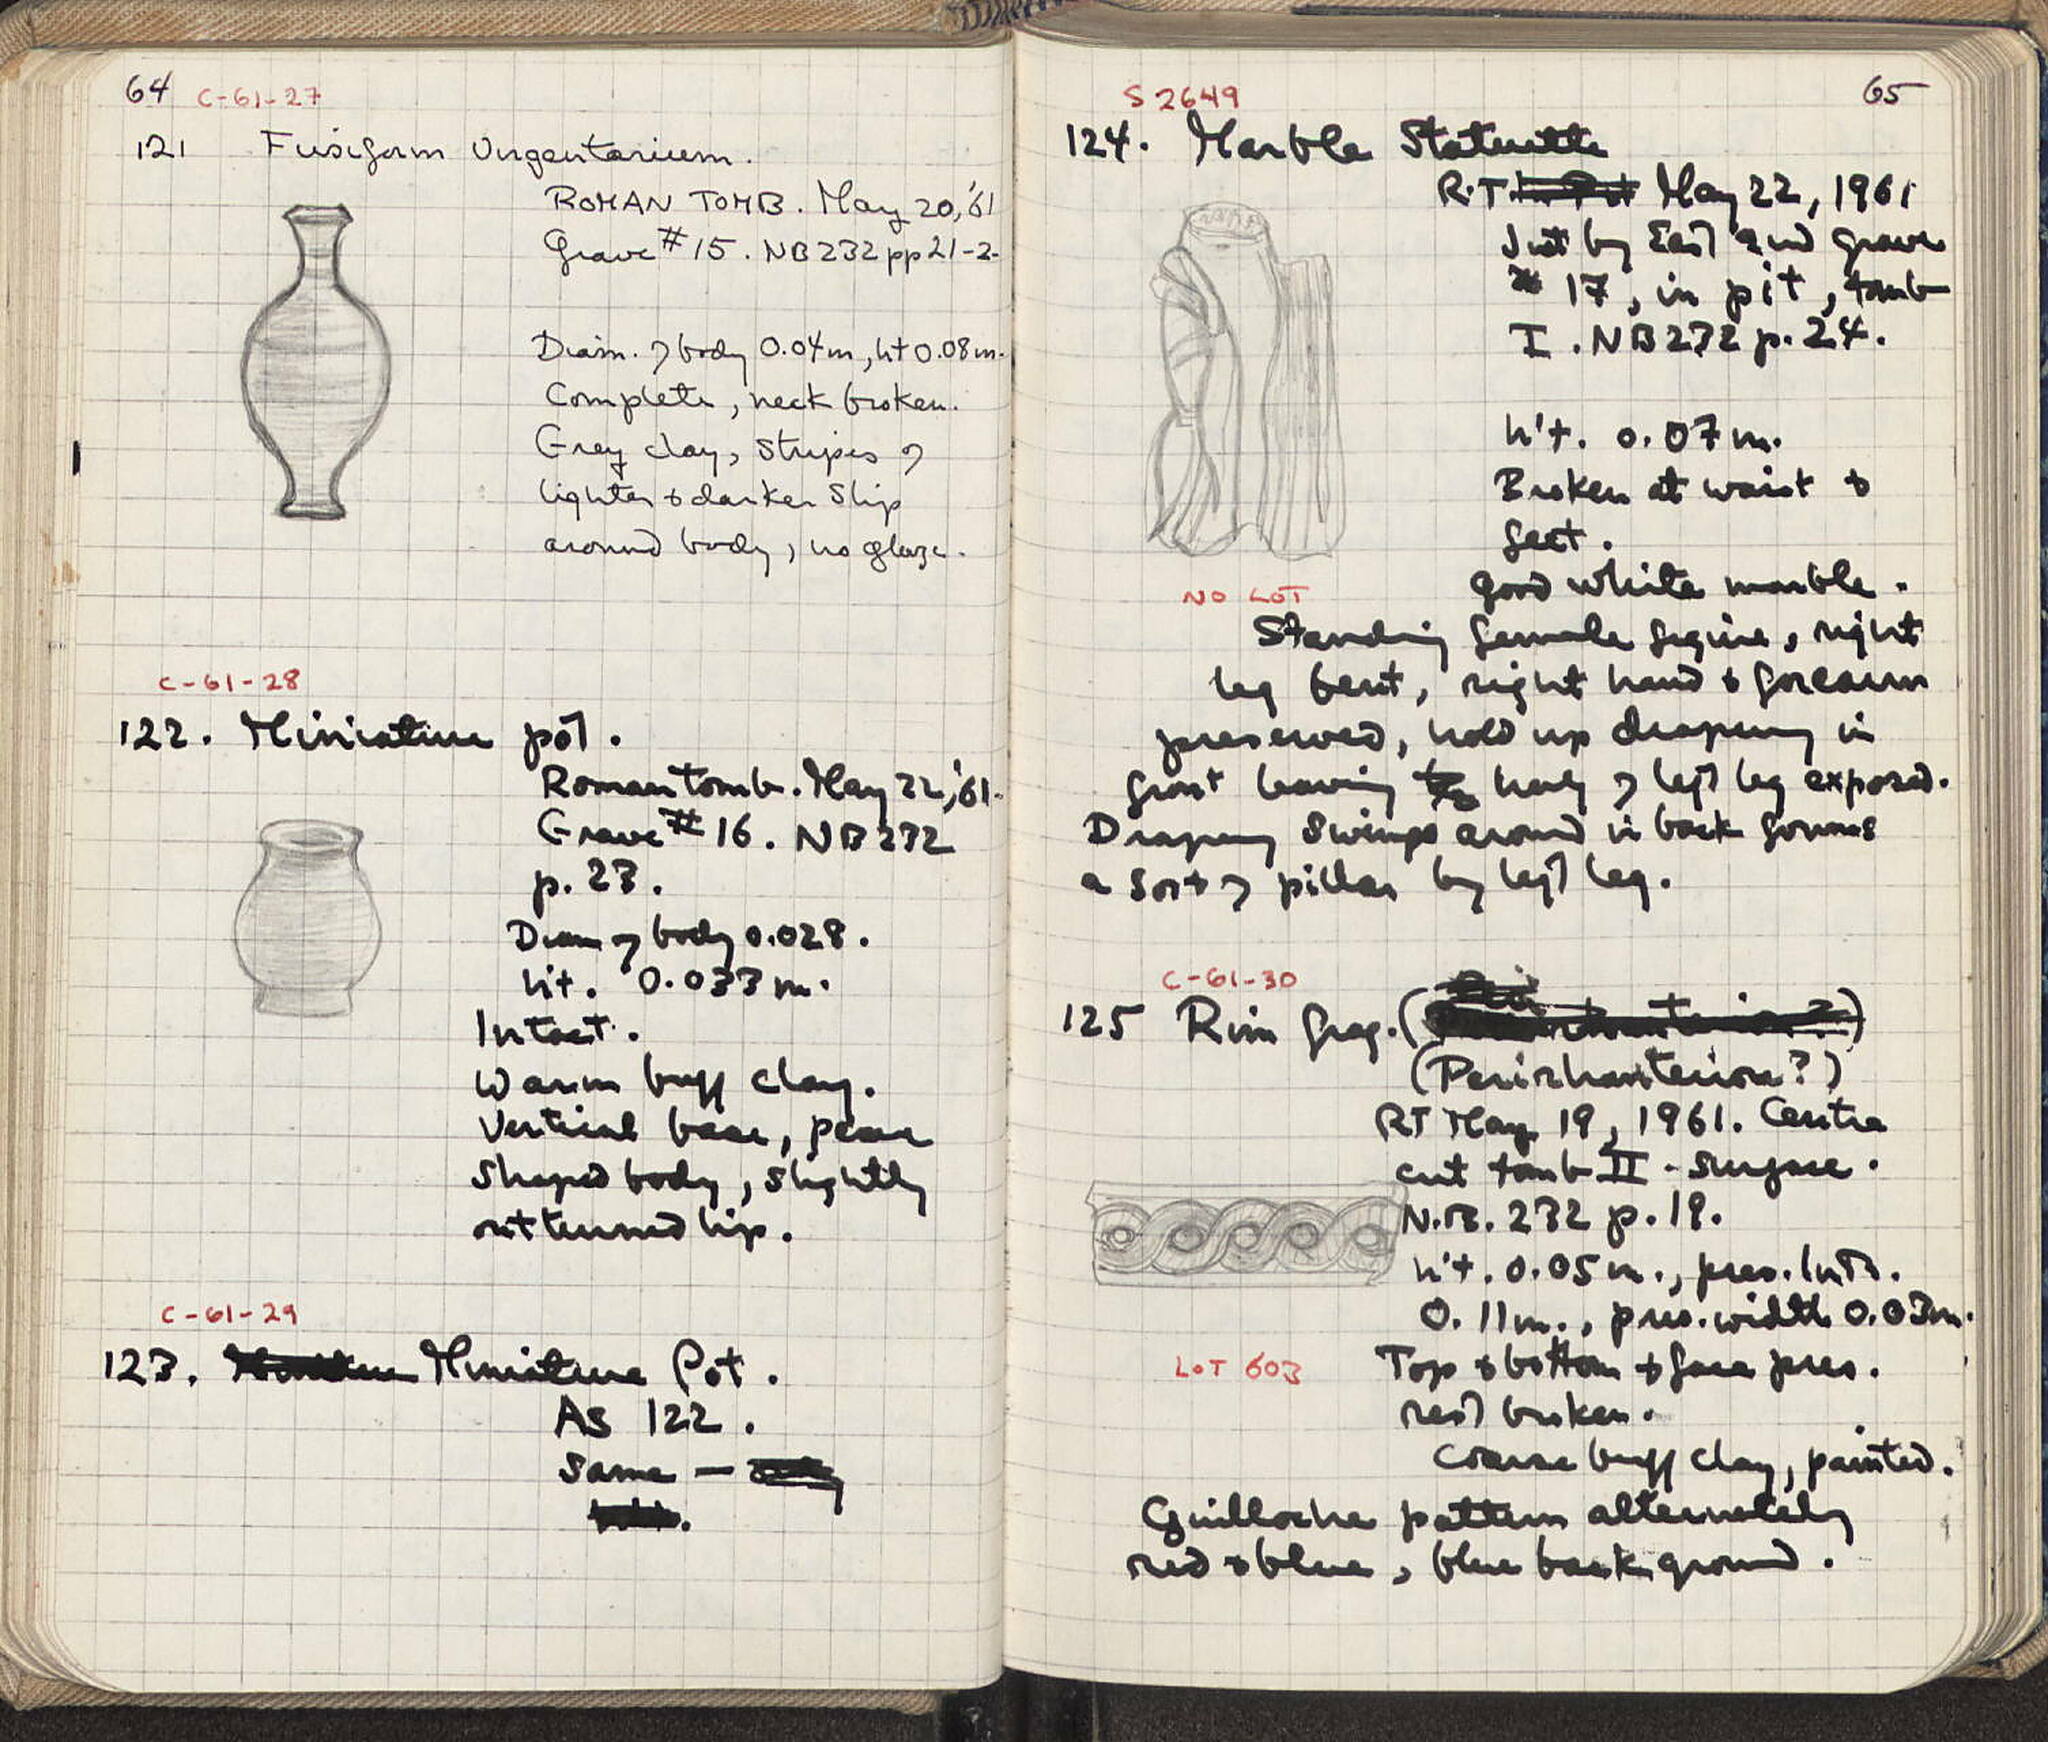 64 C-61-27
121 Fusiform Unguentarium.
ROMAN TOMB. May 20,'61
Grave #15. NB232 pp 21-2.
Diam. of body 0.04m, ht 0.08m.
Complete, neck broken.
Grey clay, stripes of
lighter & darker slip
around body, no glaze.
C-61-28
122. Miniature pot.
Roman tomb. May 22,'61.
Grave #16. NB232
p. 23.
Diam of body 0.028.
h't. 0.033m.
Intact.
Warm buff clay.
Vertical base, pear
shaped body, slightly
out turned lip.
C-61-29
123. Miniature Pot.
As 122.
Same —
S 2649 65
124. Marble Statuette
R.T. May 22, 1961
Just by East end grave
# 17, in pit, tomb
I. NB232 p. 24.
h't. 0.07m.
Broken at waist &
feet.
Good white marble.
NO LOT
Standing female figure, right
leg bent, right hand & forearm
preserved, hold up drapery in
front leaving of left leg exposed.
Drapery swings around in back forms
a sort of pillar by left leg.
C-61-30
125 Rim frag. (
(Perirrhanterion?)
RT May 19, 1961. Centre
cut tomb II - surface.
N.B. 232 p. 18.
h't. 0.05m., pres. lnth.
0.11m., pres. width 0.03m.
LOT 603 Top & bottom & face pres.
rest broken.
Coarse buff clay, painted.
Guilloche pattern alternately
red & blue, blue background.